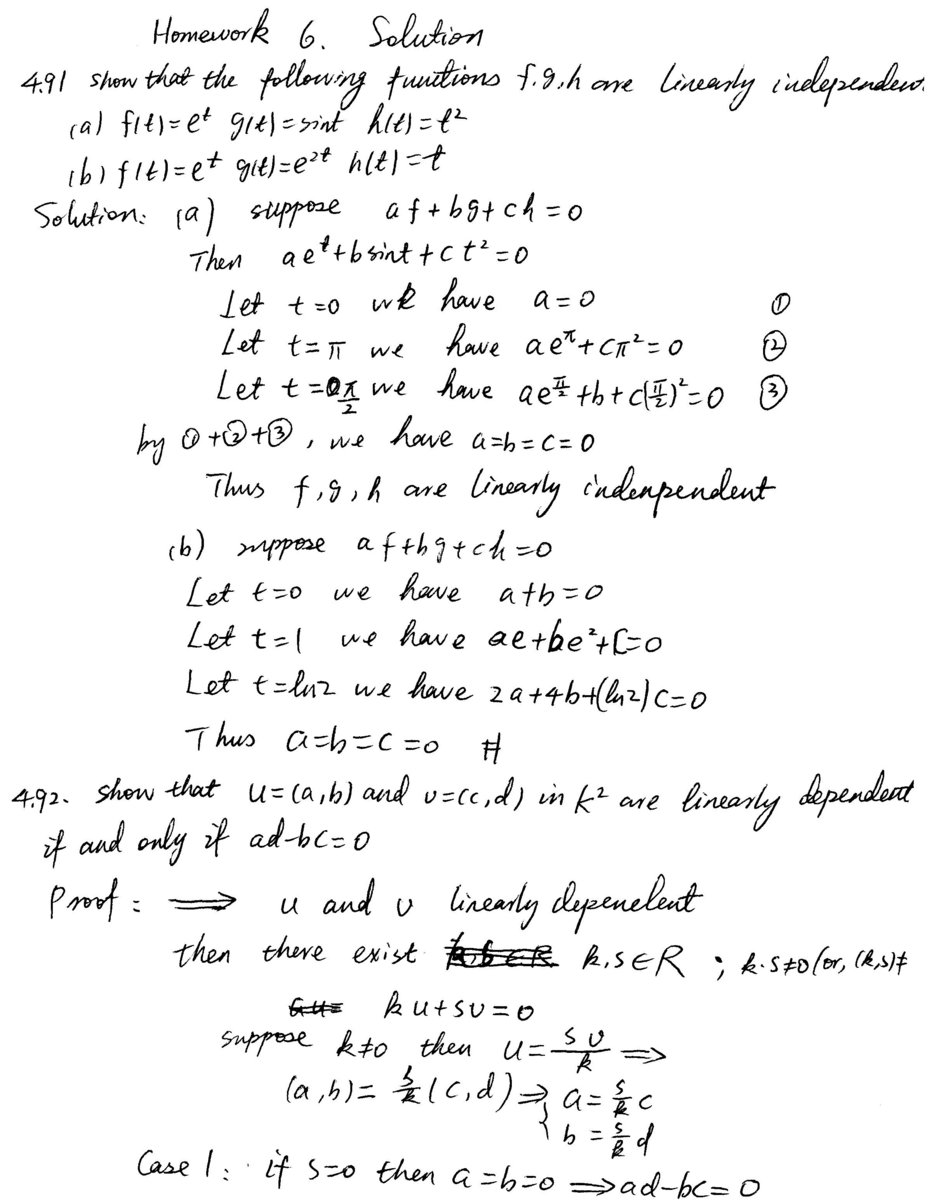 Homework 6. Solution
4.91 show that the following funtions f.g.h are linearly independent.
(a) f(t)=e^t g(t)=sint h(t)=t²
(b) f(t)=e^t g(t)=e^2t h(t)=t
Solution: (a) suppose af+bg+ch=0
Then ae^t+bsint+ct²=0
Let t=0 we have a=0 ①
Let t=π we have ae^π+cπ²=0 ②
Let t=π/2 we have ae^(π/2)+b+c(π/2)²=0 ③
by ①+②+③, we have a=b=c=0
Thus f,g,h are linearly indenpendent
(b) suppose af+bg+ch=0
Let t=0 we have a+b=0
Let t=1 we have ae+be²+C=0
Let t=ln2 we have 2a+4b+(ln2)C=0
Thus a=b=c=0 #
4.92. show that u=(a,b) and v=(c,d) in K² are linearly dependent
if and only if ad-bc=0
Proof: ⟹ u and v linearly dependent
then there exist k,s∈R ; k·s≠0 (or, (k,s)≠
ku+sv=0
suppose k≠0 then u=sv/k ⟹
(a,b)=s/k(c,d)⇒{a=s/k c
b=s/k d
Case 1: if s=0 then a=b=0 ⟹ad-bc=0